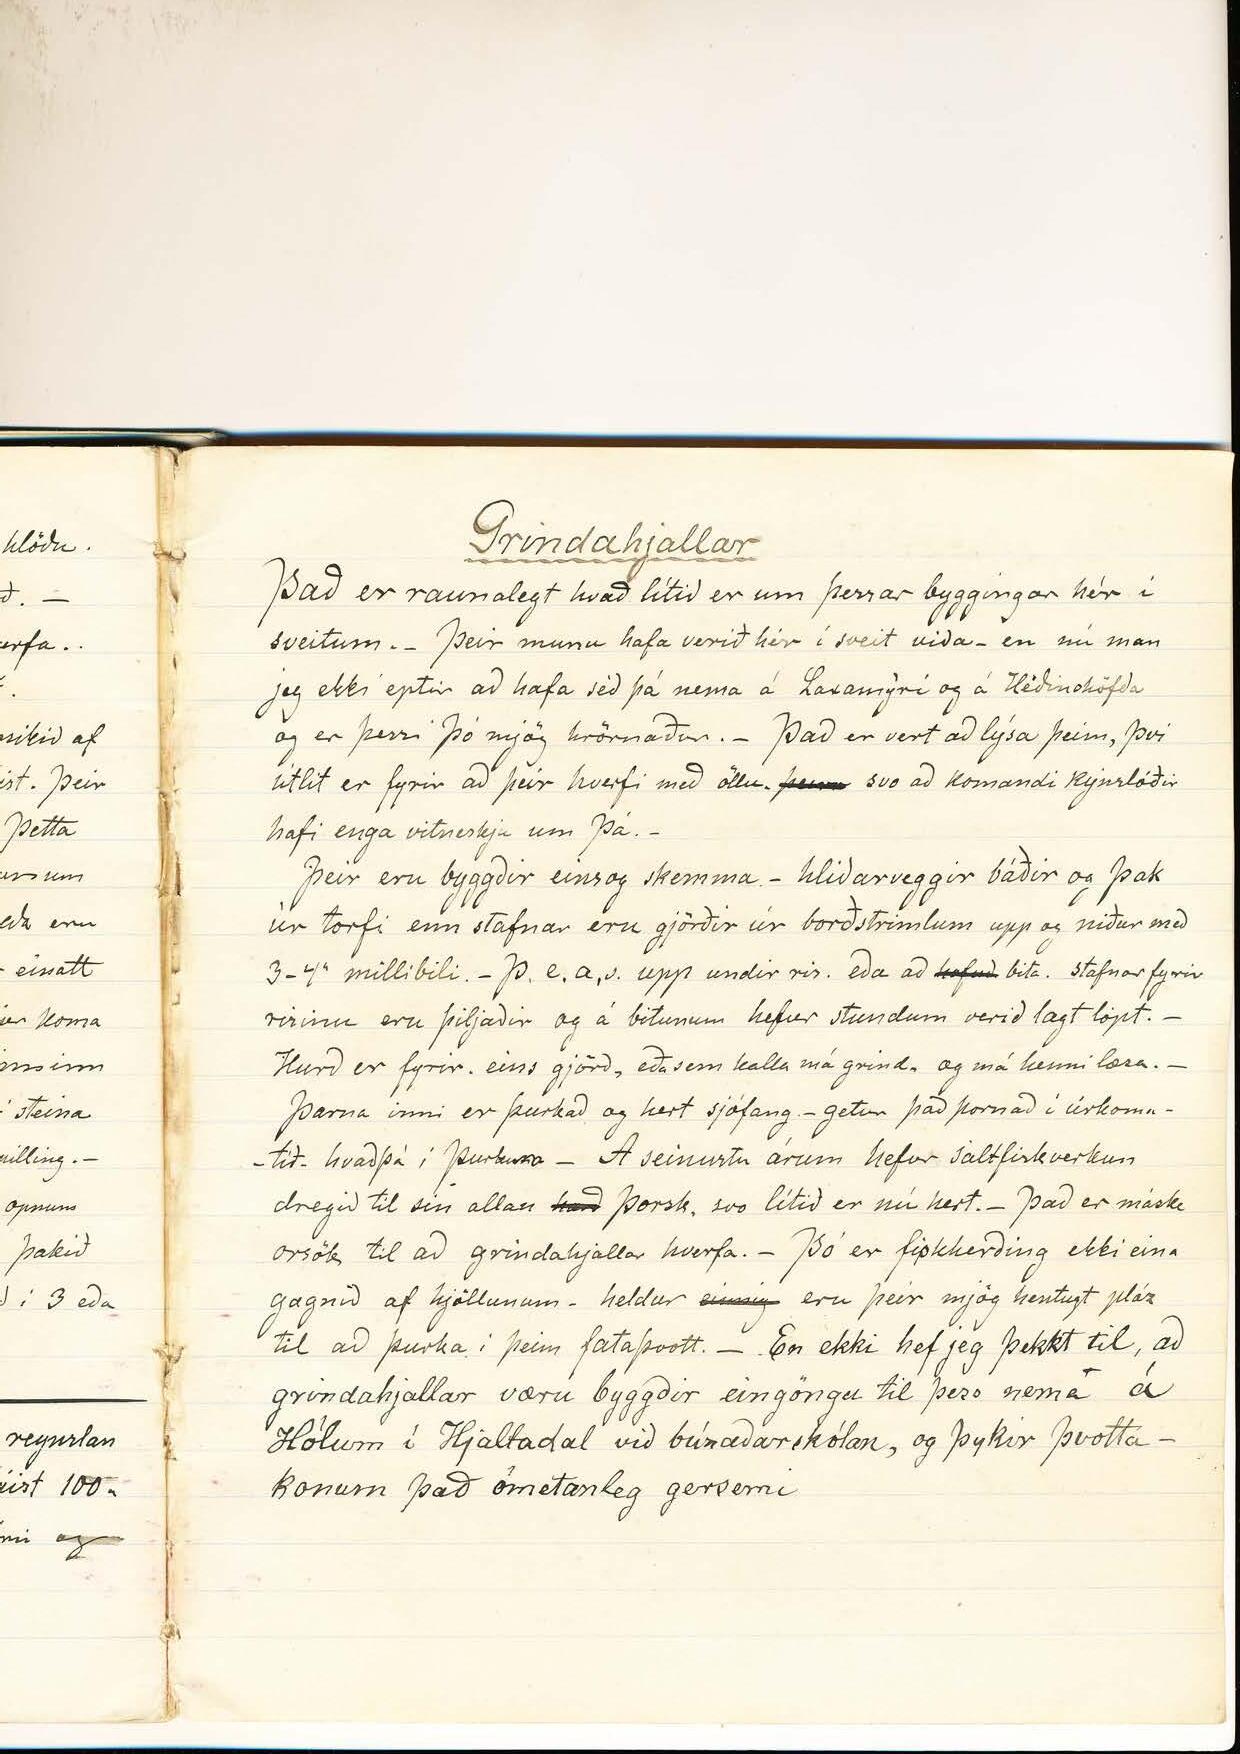 klöðu.
ð. —
erfa..
mikið af
ist. Þeir
Þetta
eru
einatt
koma
inn
steina
opnum
þakið
í 3 eða
reynslan
100.
og
Grindahjallar
Það er raunalegt hvað lítið er um þessar byggingar hér í
sveitum. – Þeir munu hafa verið hér í sveit víða – en nú man
jeg ekki eptir að hafa séð þá nema á Laxamýri og á Héðinshöfða
og er þessi þó mjög hrörnaður. – Það er vert að lýsa þeim, því
útlit er fyrir að þeir hverfi með öllu. svo að komandi kynslóðir
hafi enga vitneskju um þá. –
Þeir eru byggðir einsog skemma – hliðarveggir báðir og þak
úr torfi enn stafnar eru gjörðir úr borðstrimlum upp og niður með
3–4" millibili. – Þ. e. a. s. upp undir ris. eða að hofuð bita. stafnar fyrir
risinu eru þiljaðir og á bitunum hefur stundum verið lagt lopt. –
Hurð er fyrir. eins gjörð, eða sem kalla má grind. og má henni læsa. –
Þarna inni er þurkað og hert sjófang – getur það þornað í úrkomu-
-tíð- hvað þá í þurkum – A seinustu árum hefur saltfiskverkun
dregið til sín allan harð þorsk, svo lítið er nú hert. – Það er máske
orsök til að grindahjallar hverfa. – Þó er fiskherðing ekki eina
gagnið af hjöllunum – heldur einnig eru þeir mjög hentugt pláz
til að þurka í þeim fataþvott. – En ekki hef jeg þekkt til, að
grindahjallar væru byggðir eingöngu til þess nema á
Hólum í Hjaltadal við búnaðarskólan, og þykir þvotta-
konum það ómetanleg gersemi